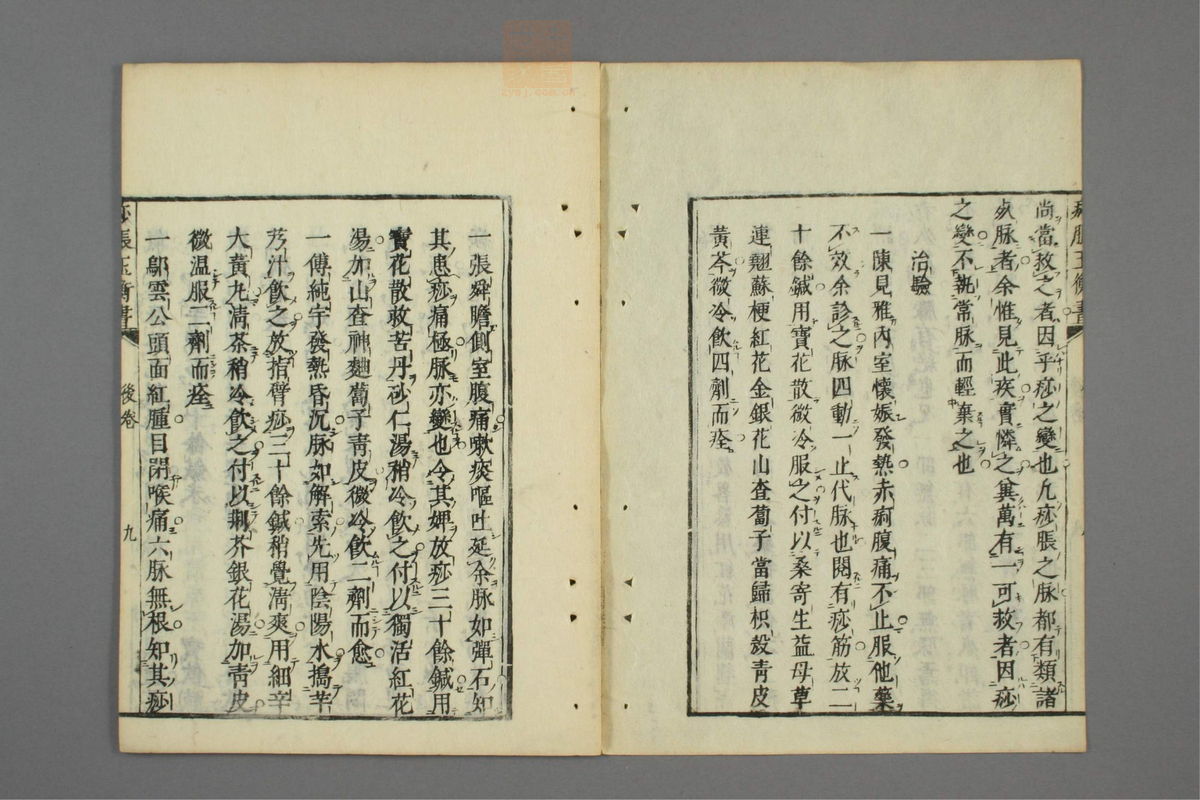 尚當救之者因乎痧之變也凢痧脹之脉都有類諸
死脉者余惟見此疾實憐之冀萬有一可救者因痧
之變不執常脉而輕棄之也
治驗
一陳見雅內室懷娠發熱赤痢腹痛不止服他藥
不效余診之脉四動一止代脉也閱有痧筋放二
十餘鍼用寶花散微冷服之付以桑寄生益母草
連翹蘇梗紅花金銀花山査蔔子當歸枳殼青皮
黃芩微冷飲四劑而痊
一張舜瞻側室腹痛嗽痰嘔吐延余脉如彈石知
其患痧痛極脉亦變也令其婢放痧三十餘鍼用
寶花散救苦丹砂仁湯稍冷飲之付以獨活紅花
湯加山査神麯蔔子青皮微冷飲二劑而愈
一傅純宇發熱昏沉脉如解索先用陰陽水搗芋
艿汁飲之放指臂痧三十餘鍼稍覺清爽用細辛
大黃丸清茶稍冷飲之付以荆芥銀花湯加青皮
微温服二劑而痊
一鄔雲公頭面紅腫目閉喉痛六脉無根知其痧
痧脹玉衡書
後卷
九